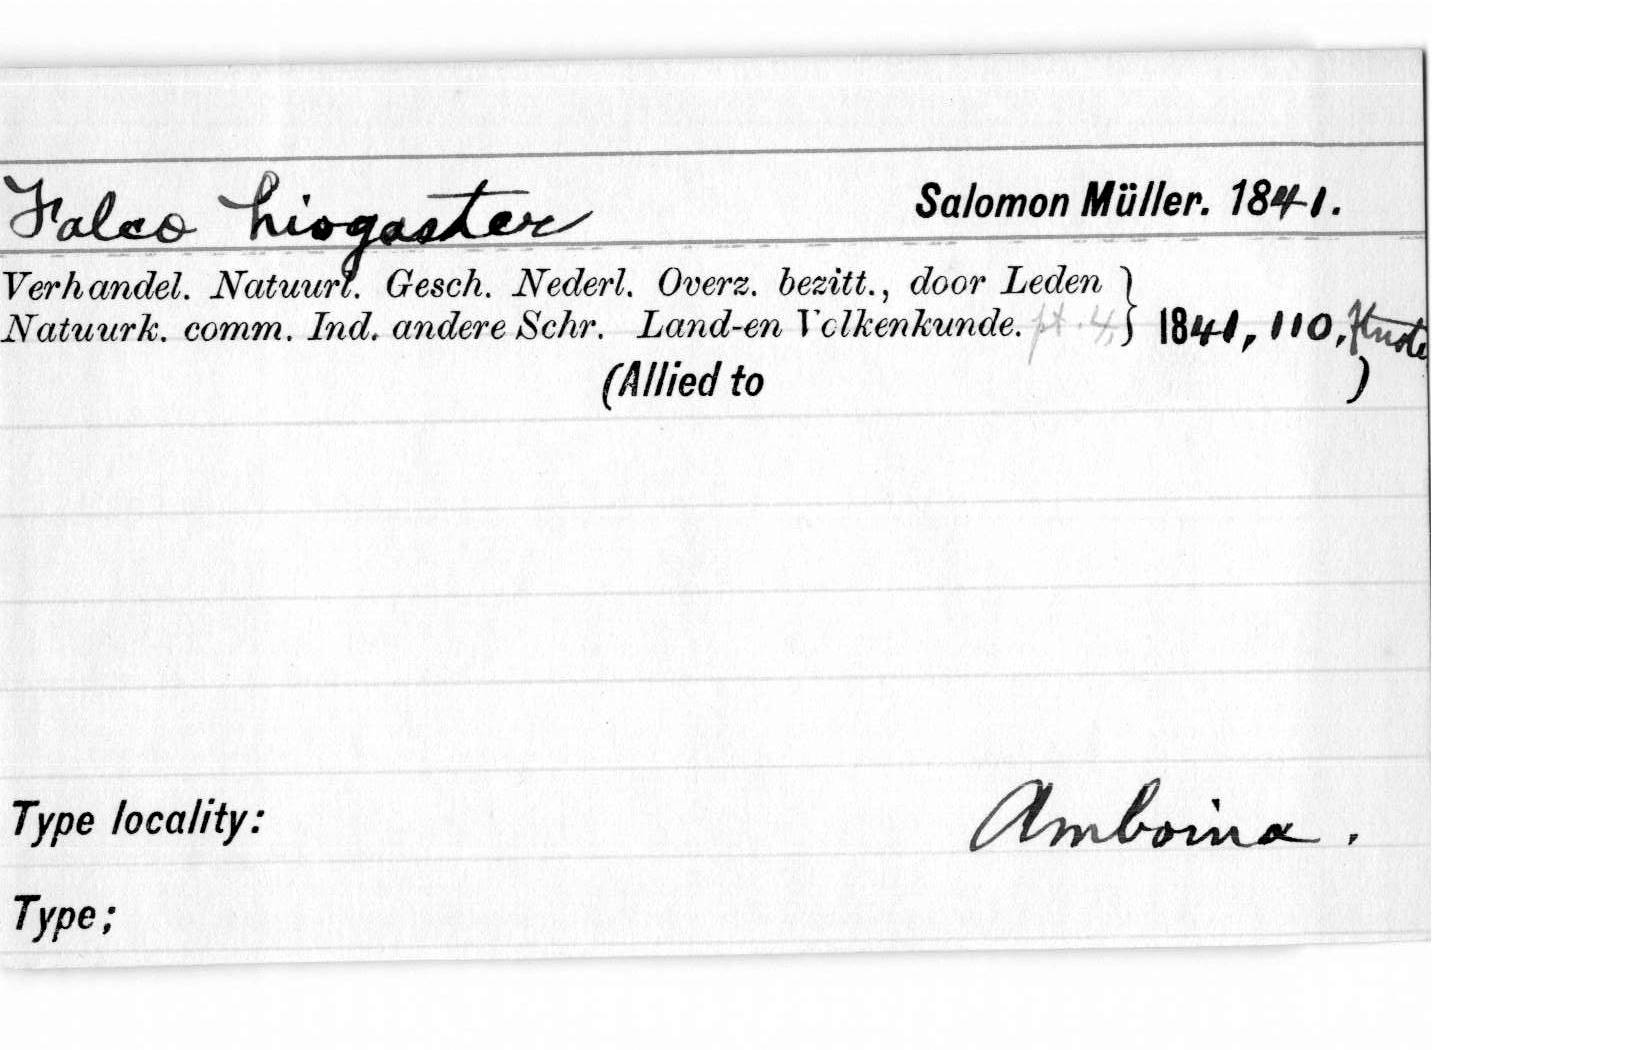 Falco hiogaster Salomon Müller. 1841.
Verhandel. Natuurl. Gesch. Nederl. Overz. bezitt., door Leden }
Natuurk. comm. Ind. andere Schr. Land-en Volkenkunde. pt. 4, } 1841, 110, ftnote
(Allied to )
Type locality: Amboina.
Type;